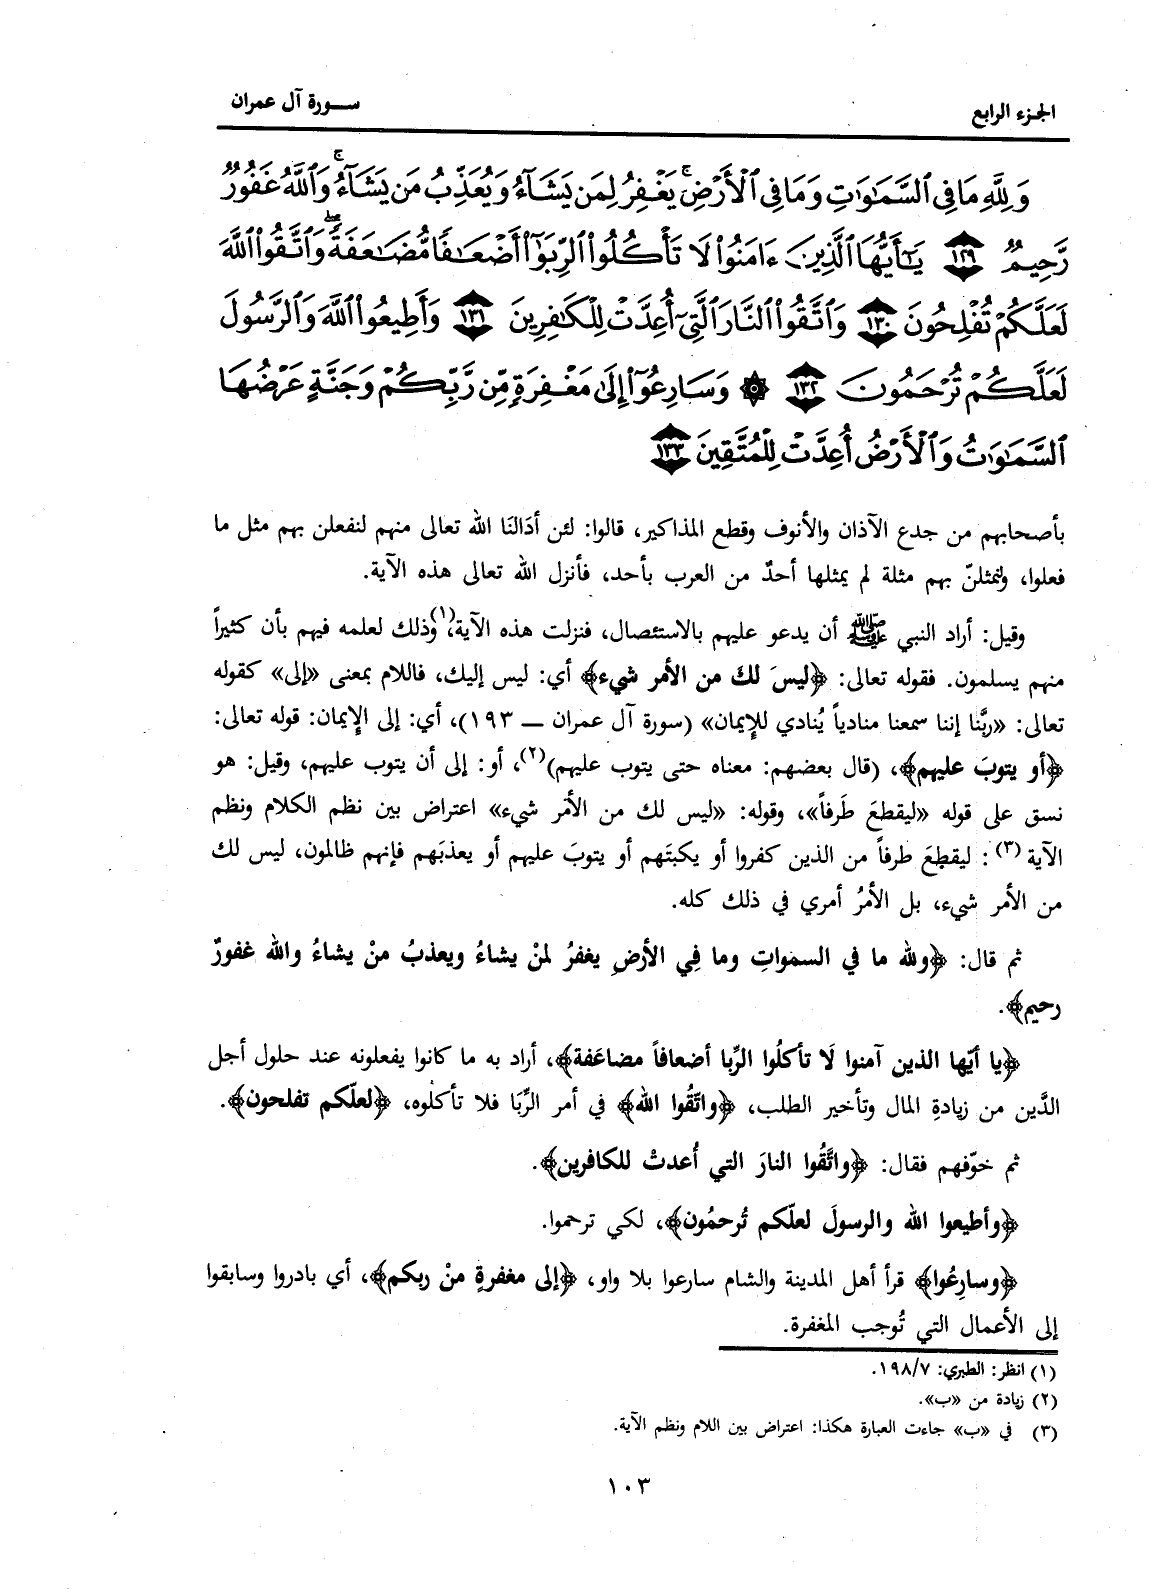 الجزء الرابع
سورة آل عمران
وَلِلَّهِ مَا فِي ٱلسَّمَٰوَٰتِ وَمَا فِي ٱلْأَرْضِ ۚ يَغْفِرُ لِمَن يَشَآءُ وَيُعَذِّبُ مَن يَشَآءُ ۚ وَٱللَّهُ غَفُورٌ
رَّحِيمٌ ١٢٩ يَٰٓأَيُّهَا ٱلَّذِينَ ءَامَنُوا۟ لَا تَأْكُلُوا۟ ٱلرِّبَوٰٓا۟ أَضْعَٰفًا مُّضَٰعَفَةً ۖ وَٱتَّقُوا۟ ٱللَّهَ
لَعَلَّكُمْ تُفْلِحُونَ ١٣٠ وَٱتَّقُوا۟ ٱلنَّارَ ٱلَّتِىٓ أُعِدَّتْ لِلْكَٰفِرِينَ ١٣١ وَأَطِيعُوا۟ ٱللَّهَ وَٱلرَّسُولَ
لَعَلَّكُمْ تُرْحَمُونَ ١٣٢ ۞ وَسَارِعُوٓا۟ إِلَىٰ مَغْفِرَةٍ مِّن رَّبِّكُمْ وَجَنَّةٍ عَرْضُهَا
ٱلسَّمَٰوَٰتُ وَٱلْأَرْضُ أُعِدَّتْ لِلْمُتَّقِينَ ١٣٣
بأصحابهم من جدع الآذان والأنوف وقطع المذاكير، قالوا: لئن أدَالنَا الله تعالى منهم لنفعلن بهم مثل ما
فعلوا، ولنمثلنّ بهم مثلة لم يمثلها أحدٌ من العرب بأحد، فأنزل الله تعالى هذه الآية.
وقيل: أراد النبي ﷺ أن يدعو عليهم بالاستئصال، فنزلت هذه الآية،(١) وذلك لعلمه فيهم بأن كثيراً
منهم يسلمون. فقوله تعالى: ﴿ليسَ لكَ من الأمر شيء﴾ أي: ليس إليك، فاللام بمعنى «إلى» كقوله
تعالى: «ربَّنا إننا سمعنا منادياً يُنادي للإيمان» (سورة آل عمران ــ ١٩٣)، أي: إلى الإيمان: قوله تعالى:
﴿أو يتوبَ عليهم﴾، (قال بعضهم: معناه حتى يتوب عليهم)(٢)، أو: إلى أن يتوب عليهم، وقيل: هو
نسق على قوله «ليقطعَ طَرفاً»، وقوله: «ليس لك من الأمر شيء» اعتراض بين نظم الكلام ونظم
الآية (٣) : ليقطعَ طرفاً من الذين كفروا أو يكبتَهم أو يتوبَ عليهم أو يعذبَهم فإنهم ظالمون، ليس لك
من الأمر شيء، بل الأمرُ أمري في ذلك كله.
ثم قال: ﴿ولله ما في السمواتِ وما فِي الأرضِ يغفرُ لمنْ يشاءُ ويعذبُ منْ يشاءُ والله غفورٌ
رحيم﴾.
﴿يا أيّها الذين آمنوا لَا تأكلُوا الرِّبا أضعافاً مضاعَفة﴾، أراد به ما كانوا يفعلونه عند حلول أجل
الدَّين من زيادةِ المال وتأخير الطلب، ﴿واتَّقُوا الله﴾ في أمر الرِّبَا فلا تأكلوه، ﴿لعلّكم تفلحون﴾.
ثم خوّفهم فقال: ﴿واتَّقُوا النارَ التي أُعدتْ للكافرين﴾.
﴿وأطيعوا الله والرسولَ لعلّكم تُرحمُون﴾، لكي ترحموا.
﴿وسارِعُوا﴾ قرأ أهل المدينة والشام سارعوا بلا واو، ﴿إلى مغفرةٍ منْ ربكم﴾، أي بادروا وسابقوا
إلى الأعمال التي تُوجب المغفرة.
(١) انظر: الطبري: ١٩٨/٧.
(٢) زيادة من «ب».
(٣) في «ب» جاءت العبارة هكذا: اعتراض بين اللام ونظم الآية.
١٠٣